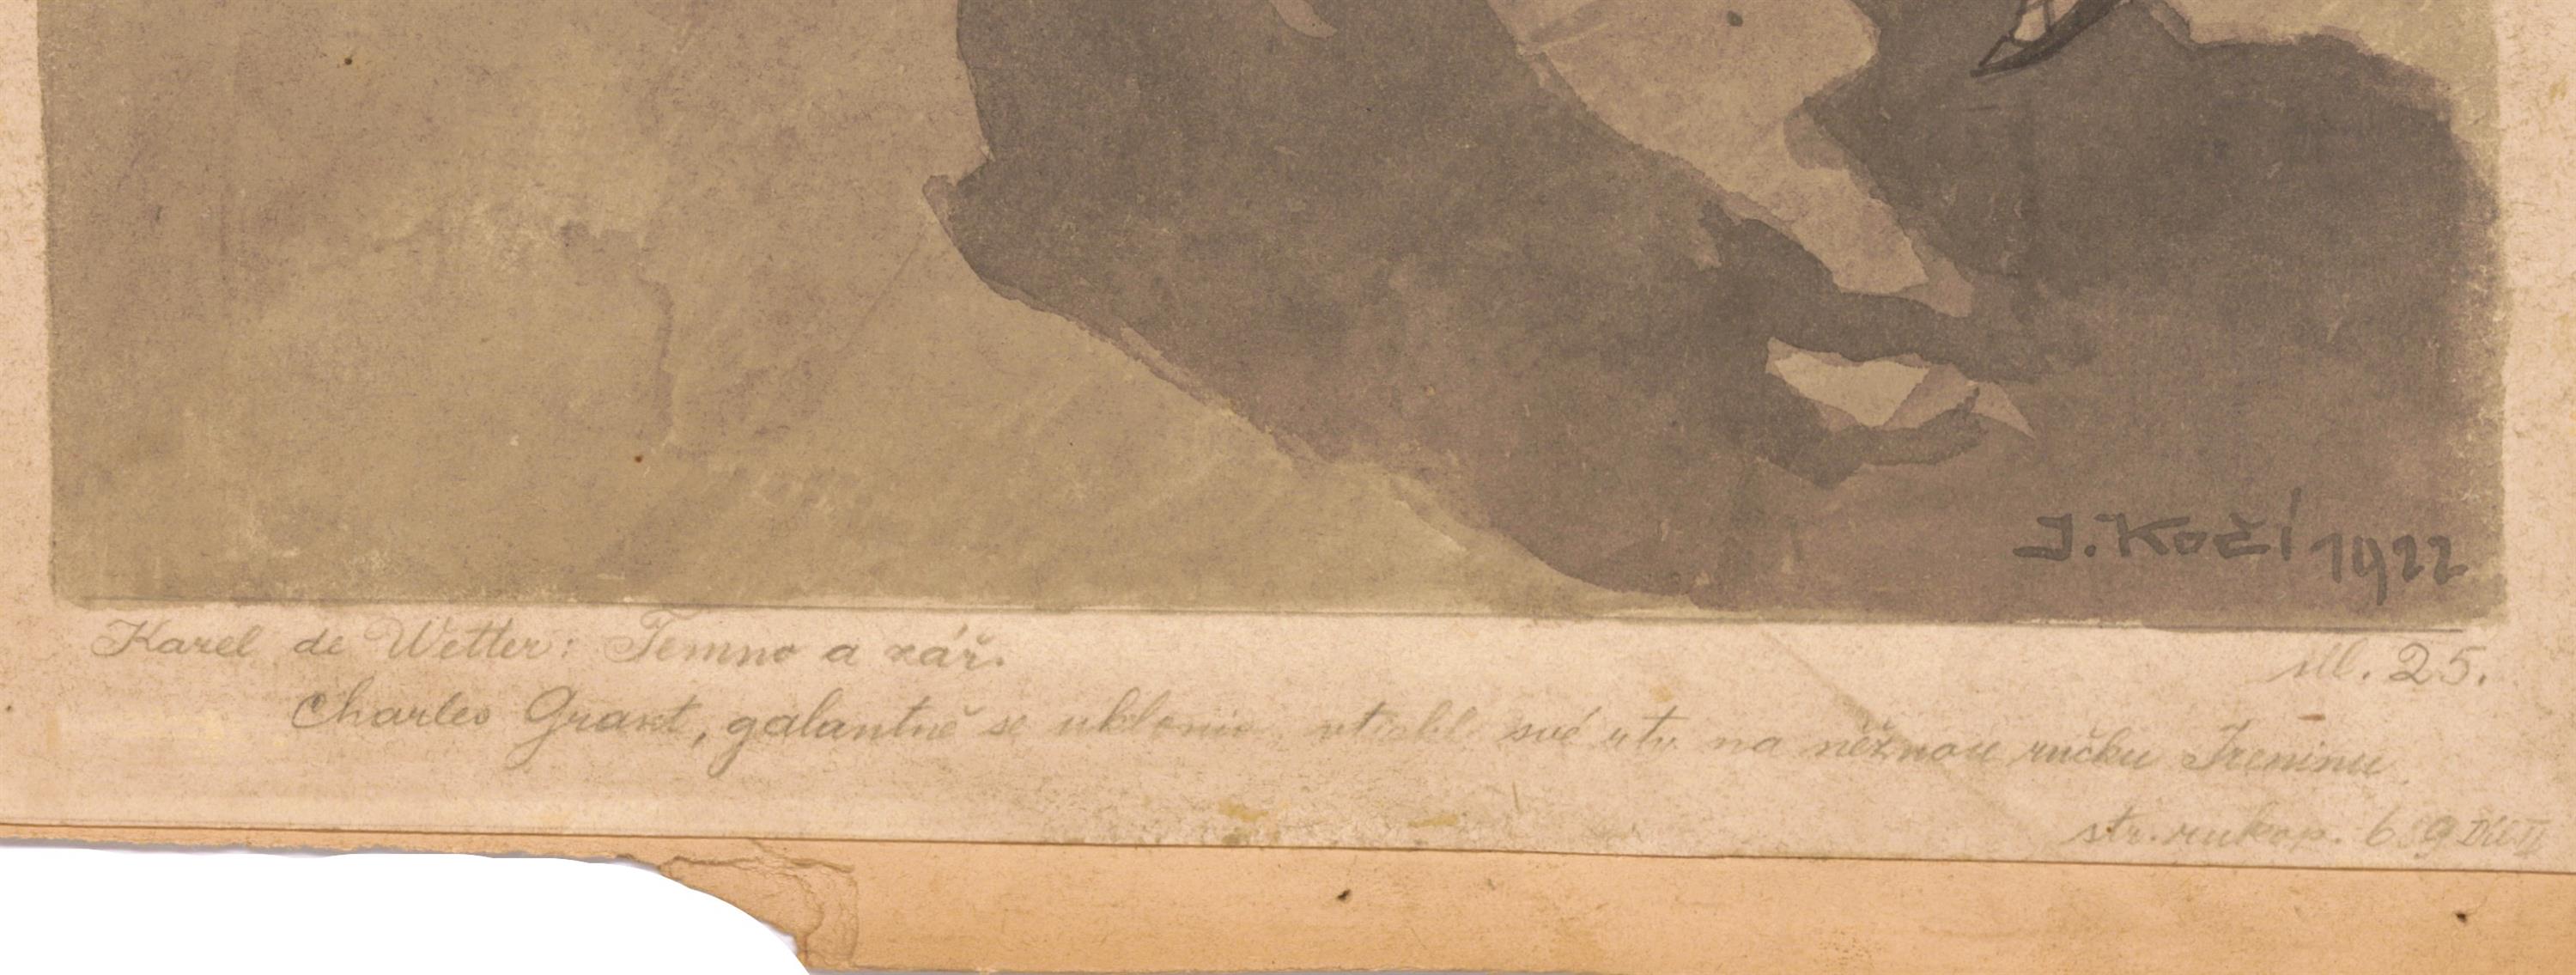 J. Kočí 1922
Karel de Wetter: Temno a zář.
ill. 25.
Charles Grant, galantně se ukloniv, vtiskl své rty na něžnou ručku Ireninu.
str. rukop. Díl II